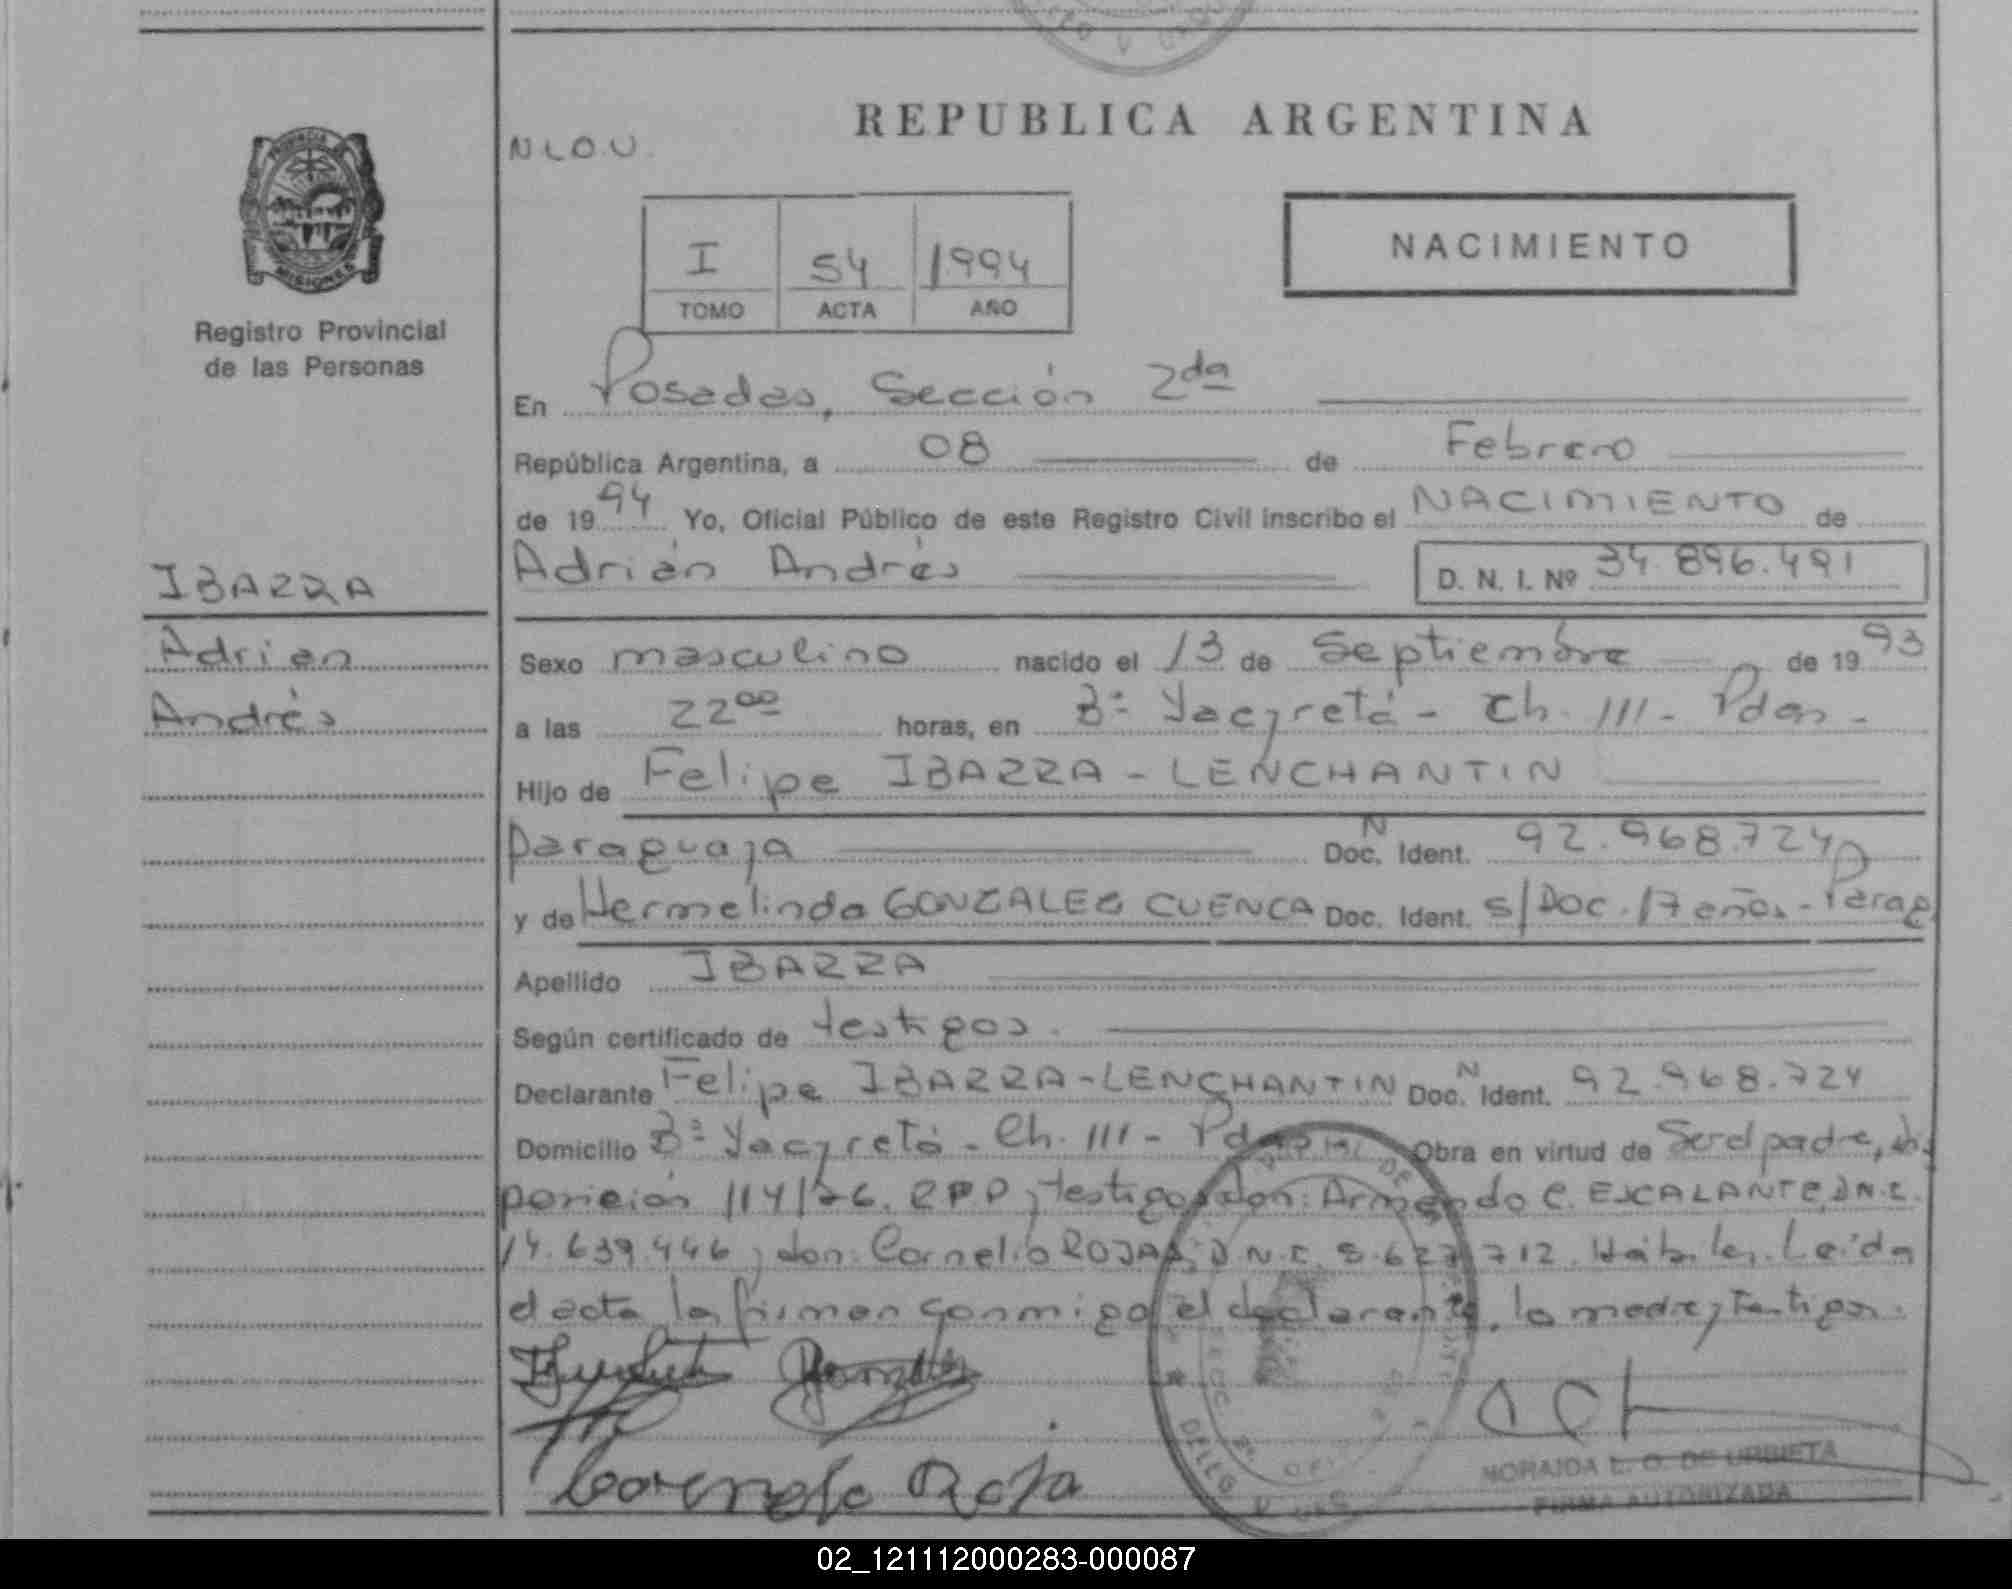 REPUBLICA ARGENTINA
N.L.O.U.
PROVINCIA
MISIONES
Registro Provincial
de las Personas
I 54 1994
TOMO ACTA AÑO
NACIMIENTO
En Posadas, Sección 2da
República Argentina, a 08 de Febrero
de 1994 Yo, Oficial Público de este Registro Civil inscribo el NACIMIENTO de
Adrián Andrés D. N. I. Nº 34.896.491
IBARRA
Adrian
Andrés
Sexo masculino nacido el 13 de Septiembre de 1993
a las 22 00 horas, en Bº Yacyretá - Ch. III - Pdas -
Hijo de Felipe IBARRA - LENCHANTIN
paraguaya Doc. N Ident. 92.968.724
y de Hermelinda GONZALEZ CUENCA Doc. Ident. s/Doc. 17 años - Parag
Apellido IBARRA
Según certificado de testigos.
Declarante Felipe IBARRA-LENCHANTIN Doc. N Ident. 92.968.724
Domicilio Bº Yacyretá - Ch. III - Pdas Obra en virtud de Ser el padre, dis
posición 114/76. R.P.P y testigos don: Armando C. ESCALANTE, D.N.I.
14.639.446 y don: Cornelio ROJAS, D.N.I. 8.627.712. Hábiles. Leída
el acta la firman conmigo el declarante, la madre y testigos.
Cornelo Roja
NORAIDA L. O. DE URBIETA
FIRMA AUTORIZADA
02_121112000283-000087